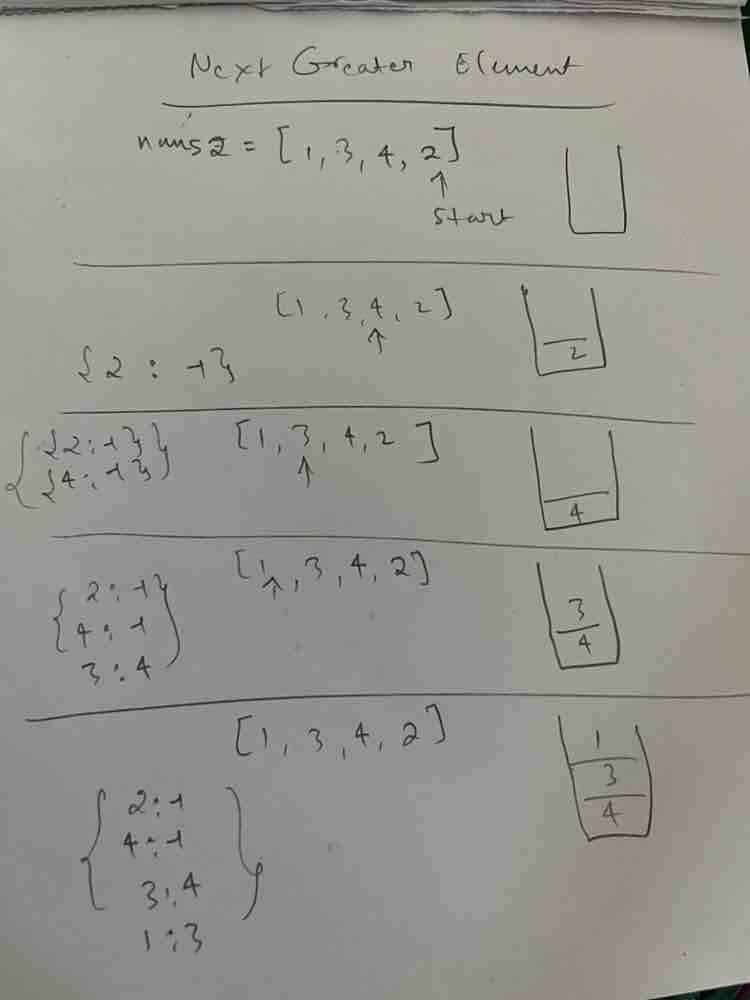 Next Greater Element
nums2 = [1, 3, 4, 2]
↑
start
[1, 3, 4, 2]
↑
2
{2 : -1}
{{2 : -1}}
[1, 3, 4, 2]
{4 : -1}
↑
4
[1, 3, 4, 2]
↑
{2 : -1}
4 : -1
3 : 4
3
4
[1, 3, 4, 2]
1
3
4
{2 : -1}
4 : -1
3 : 4
1 : 3